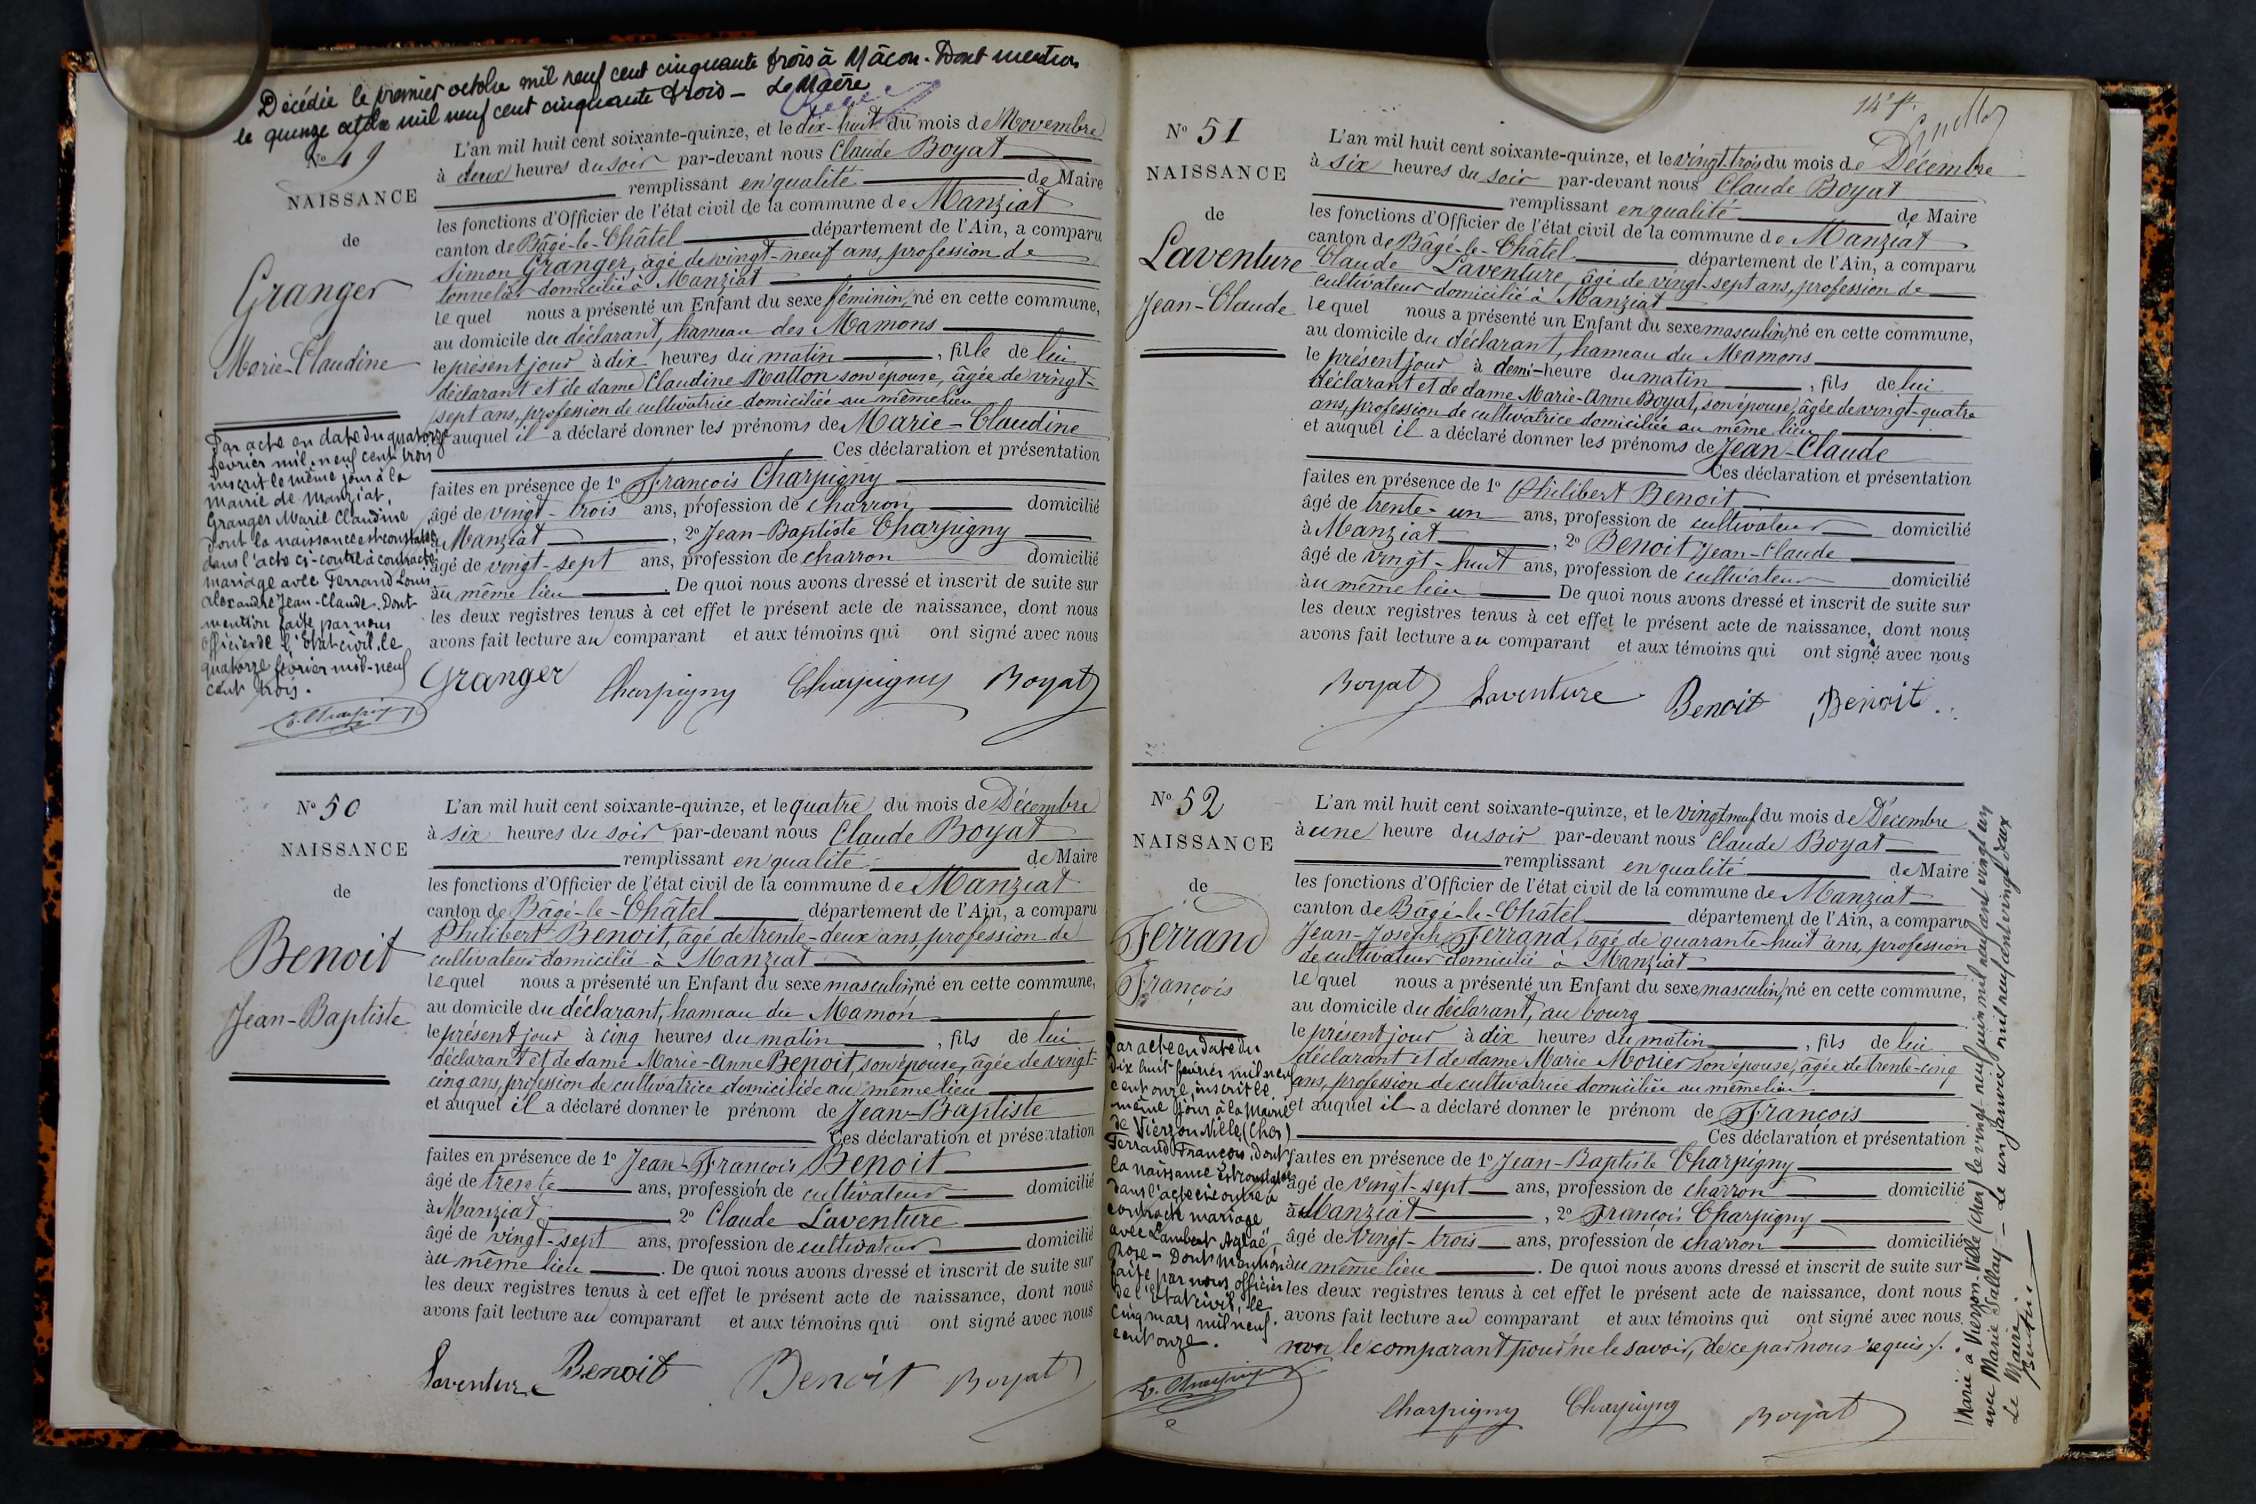 Décédée le premier octobre mil neuf cent cinquante trois à Mâcon. Dont mention
le quinze octobre mil neuf cent cinquante trois — Le Maire
No 49
NAISSANCE
de
Granger
Marie-Claudine
Par acte en date du quatorze
février mil neuf cent trois
inscrit le même jour à la
mairie de Manziat,
Granger Marie Claudine
dont la naissance est constatée
dans l'acte ci-contre à contracté
mariage avec Ferrand Louis
Alexandre Jean-Claude. Dont
mention faite par nous
officier de l'Etat civil, le
quatorze février mil-neuf
cent trois.
L'an mil huit cent soixante-quinze, et le dix-huit du mois de Novembre
à deux heures du soir par-devant nous Claude Boyat
remplissant en qualité de Maire
les fonctions d'Officier de l'état civil de la commune de Manziat
canton de Bâgé-le-Châtel département de l'Ain, a comparu
Simon Granger, âgé de vingt-neuf ans, profession de
tonnelier domicilié à Manziat
lequel nous a présenté un Enfant du sexe féminin, né en cette commune,
au domicile du déclarant, hameau des Mamons
le présent jour à dix heures du matin, fille de lui
déclarant et de dame Claudine Batton son épouse, âgée de vingt-
sept ans, profession de cultivatrice domiciliée au même lieu
et auquel il a déclaré donner les prénoms de Marie-Claudine
Ces déclaration et présentation
faites en présence de 1o François Charpigny
âgé de vingt-trois ans, profession de charron domicilié
à Manziat, 2o Jean-Baptiste Charpigny
âgé de vingt-sept ans, profession de charron domicilié
au même lieu. De quoi nous avons dressé et inscrit de suite sur
les deux registres tenus à cet effet le présent acte de naissance, dont nous
avons fait lecture au comparant et aux témoins qui ont signé avec nous
Granger Charpigny Charpigny Boyat
No 50
NAISSANCE
de
Benoit
Jean-Baptiste
L'an mil huit cent soixante-quinze, et le quatre du mois de Décembre
à six heures du soir par-devant nous Claude Boyat
remplissant en qualité de Maire
les fonctions d'Officier de l'état civil de la commune de Manziat
canton de Bâgé-le-Châtel département de l'Ain, a comparu
Philibert Benoit, âgé de trente-deux ans, profession de
cultivateur domicilié à Manziat
lequel nous a présenté un Enfant du sexe masculin, né en cette commune,
au domicile du déclarant, hameau du Mamon
le présent jour à cinq heures du matin, fils de lui
déclarant et de dame Marie-Anne Benoit, son épouse, âgée de vingt-
cinq ans, profession de cultivatrice domiciliée au même lieu
et auquel il a déclaré donner le prénom de Jean-Baptiste
Ces déclaration et présentation
faites en présence de 1o Jean-François Benoit
âgé de trente ans, profession de cultivateur domicilié
à Manziat 2o Claude Laventure
âgé de vingt-sept ans, profession de cultivateur domicilié
au même lieu. De quoi nous avons dressé et inscrit de suite sur
les deux registres tenus à cet effet le présent acte de naissance, dont nous
avons fait lecture au comparant et aux témoins qui ont signé avec nous
Laventure Benoit Benoit Boyat
14e f.
No 51
NAISSANCE
de
Laventure
Jean-Claude
L'an mil huit cent soixante-quinze, et le vingt-trois du mois de Décembre
à six heures du soir par-devant nous Claude Boyat
remplissant en qualité de Maire
les fonctions d'Officier de l'état civil de la commune de Manziat
canton de Bâgé-le-Châtel département de l'Ain, a comparu
Claude Laventure, âgé de vingt-sept ans, profession de
cultivateur domicilié à Manziat
lequel nous a présenté un Enfant du sexe masculin, né en cette commune,
au domicile du déclarant, hameau du Mamons
le présent jour à demi-heure du matin, fils de lui
déclarant et de dame Marie-Anne Boyat, son épouse, âgée de vingt-quatre
ans, profession de cultivatrice domiciliée au même lieu
et auquel il a déclaré donner les prénoms de Jean-Claude
Ces déclaration et présentation
faites en présence de 1o Philibert Benoit
âgé de trente-un ans, profession de cultivateur domicilié
à Manziat, 2o Benoit Jean-Claude
âgé de vingt-huit ans, profession de cultivateur domicilié
au même lieu De quoi nous avons dressé et inscrit de suite sur
les deux registres tenus à cet effet le présent acte de naissance, dont nous
avons fait lecture au comparant et aux témoins qui ont signé avec nous
Boyat Laventure Benoit Benoit
No 52
NAISSANCE
de
Ferrand
François
Par acte en date du
dix huit février mil neuf
cent onze, inscrit le
même jour à la mairie
de Vierzon Ville (Cher)
Ferrand François, dont
la naissance est constatée
dans l'acte ci contre a
contracté mariage
avec Lambert Aglaé
Rose — Dont mention
faite par nous officier
de l'Etat civil, le
cinq mars mil neuf
cent onze.
L'an mil huit cent soixante-quinze, et le vingt neuf du mois de Décembre
à une heure du soir par-devant nous Claude Boyat
remplissant en qualité de Maire
les fonctions d'Officier de l'état civil de la commune de Manziat
canton de Bâgé-le-Châtel département de l'Ain, a comparu
Jean-Joseph Ferrand, âgé de quarante-huit ans, profession
de cultivateur domicilié à Manziat
lequel nous a présenté un Enfant du sexe masculin, né en cette commune,
au domicile du déclarant, au bourg
le présent jour à dix heures du matin, fils de lui
déclarant et de dame Marie Morier son épouse, âgée de trente-cinq
ans, profession de cultivatrice domiciliée au même lieu
et auquel il a déclaré donner le prénom de François
Ces déclaration et présentation
faites en présence de 1o Jean-Baptiste Charpigny
âgé de vingt-sept ans, profession de charron domicilié
à Manziat, 2o François Charpigny
âgé de vingt-trois ans, profession de charron domicilié
au même lieu. De quoi nous avons dressé et inscrit de suite sur
les deux registres tenus à cet effet le présent acte de naissance, dont nous
avons fait lecture au comparant et aux témoins qui ont signé avec nous.
non le comparant pour ne le savoir, de ce par nous requis.
Charpigny Charpigny Boyat
Marié à Vierzon-Ville (Cher) le vingt neuf juin mil neuf cent vingt un
avec Marie Sallay — Le un janvier mil neuf cent vingt deux
Le Maire